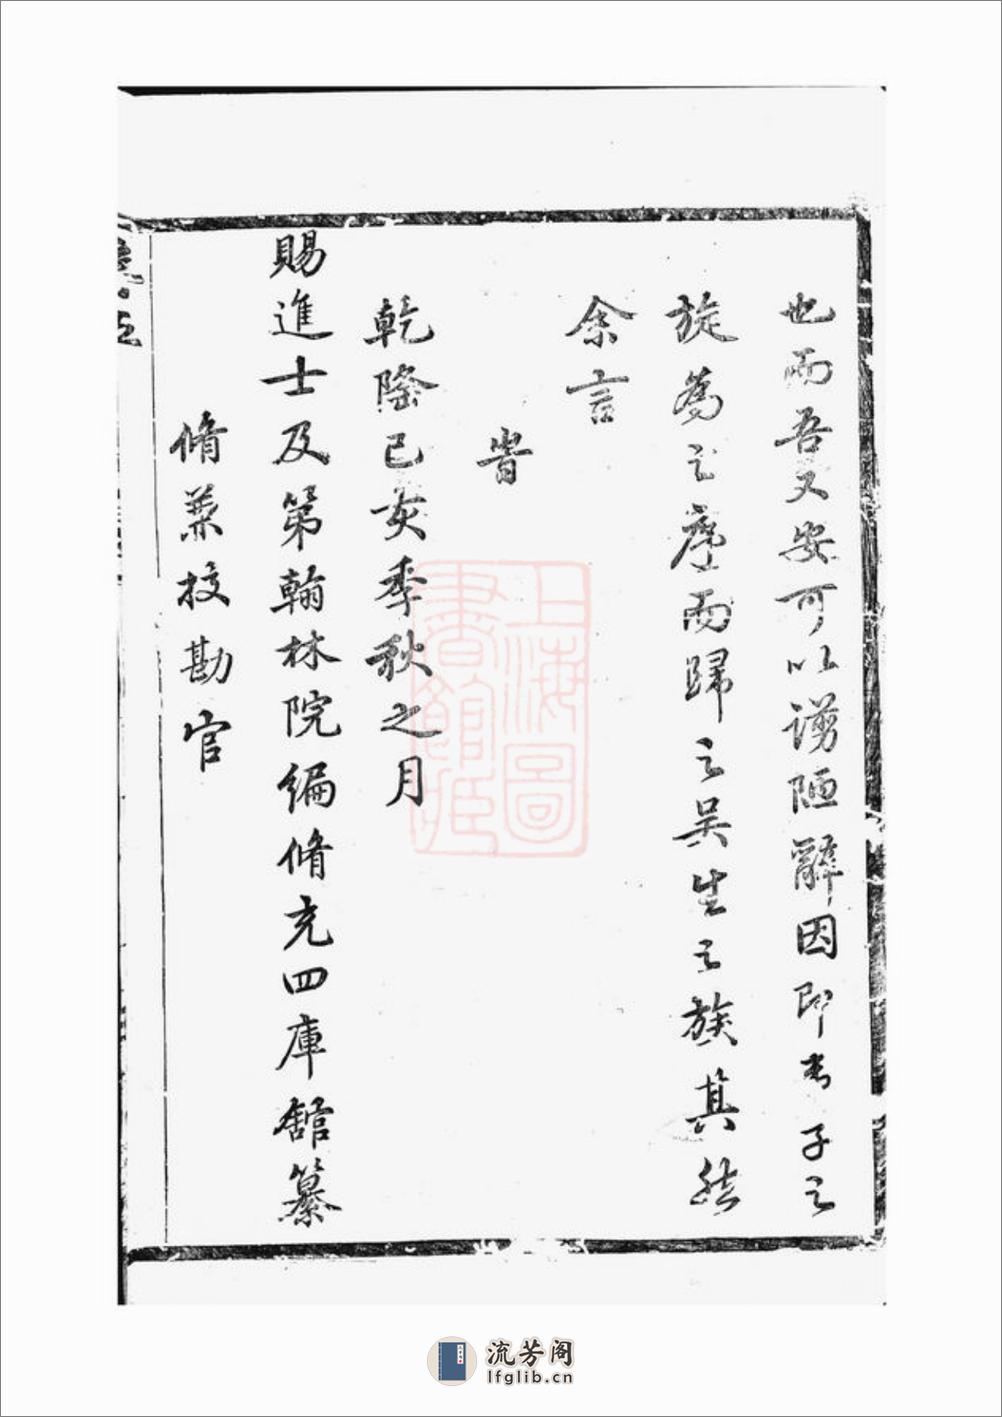 也而吾又安可以谫陋辭因即書子之
旋為之序而歸之吳生之族其然
余言
旹
乾隆己亥季秋之月
賜進士及第翰林院編脩充四庫館纂
脩兼校勘官
上海圖
書館藏
流芳阁
lfglib.cn